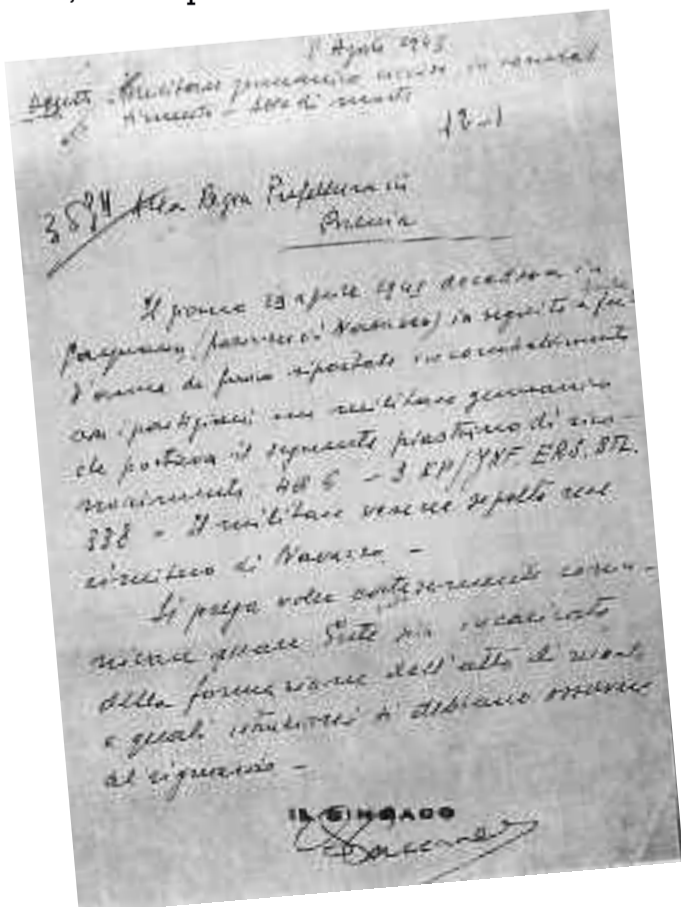 1 Agosto 1945
Oggetto - Militare germanico ucciso in combat
timento - Atto di morte
12-1
3594 Alla Regia Prefettura di
Brescia
Il giorno 29 aprile 1945 decedeva in
(frazione di Navazzo) in seguito a ferite
d'arma da fuoco riportate in combattimento
con i partigiani un militare germanico
che portava il seguente piastrino di rico-
noscimento 486 - 3 KP/YNF. ERS. BTL.
338 - Il militare venne sepolto nel
cimitero di Navazzo -
Si prega voler cortesemente comu-
nicare quale Ente sia incaricato
della formazione dell'atto di morte
e quali istruzioni si debbano osservare
al riguardo -
IL SINDACO